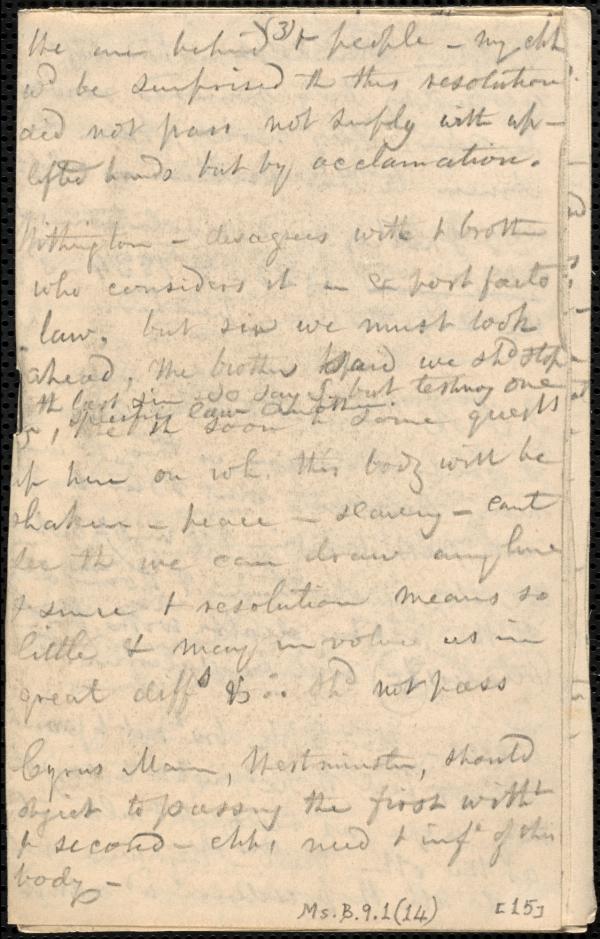 (3)
the one behind + people - my chh
wd be surprised th this resolution
did not pass not simply with up-
lifted hands but by acclamation.
Withington - disagrees with + brother
who considers it an ex post facto
law. but sir we must look
ahead, the brother said we shd stop
th last sin so say I, but testimony one
specific law another.
th soon some guests
up here on wh. this body will be
shaken - peace - slavery - cant
see th we can draw any line
& since + resolution means so
little & may involve us in
great diffs shd not pass
Cyrus Mann, Westminster, should
object to passing the first witht
+ second - chhs need + infe of this
body -
Ms. B. 9. 1 (14) [15]